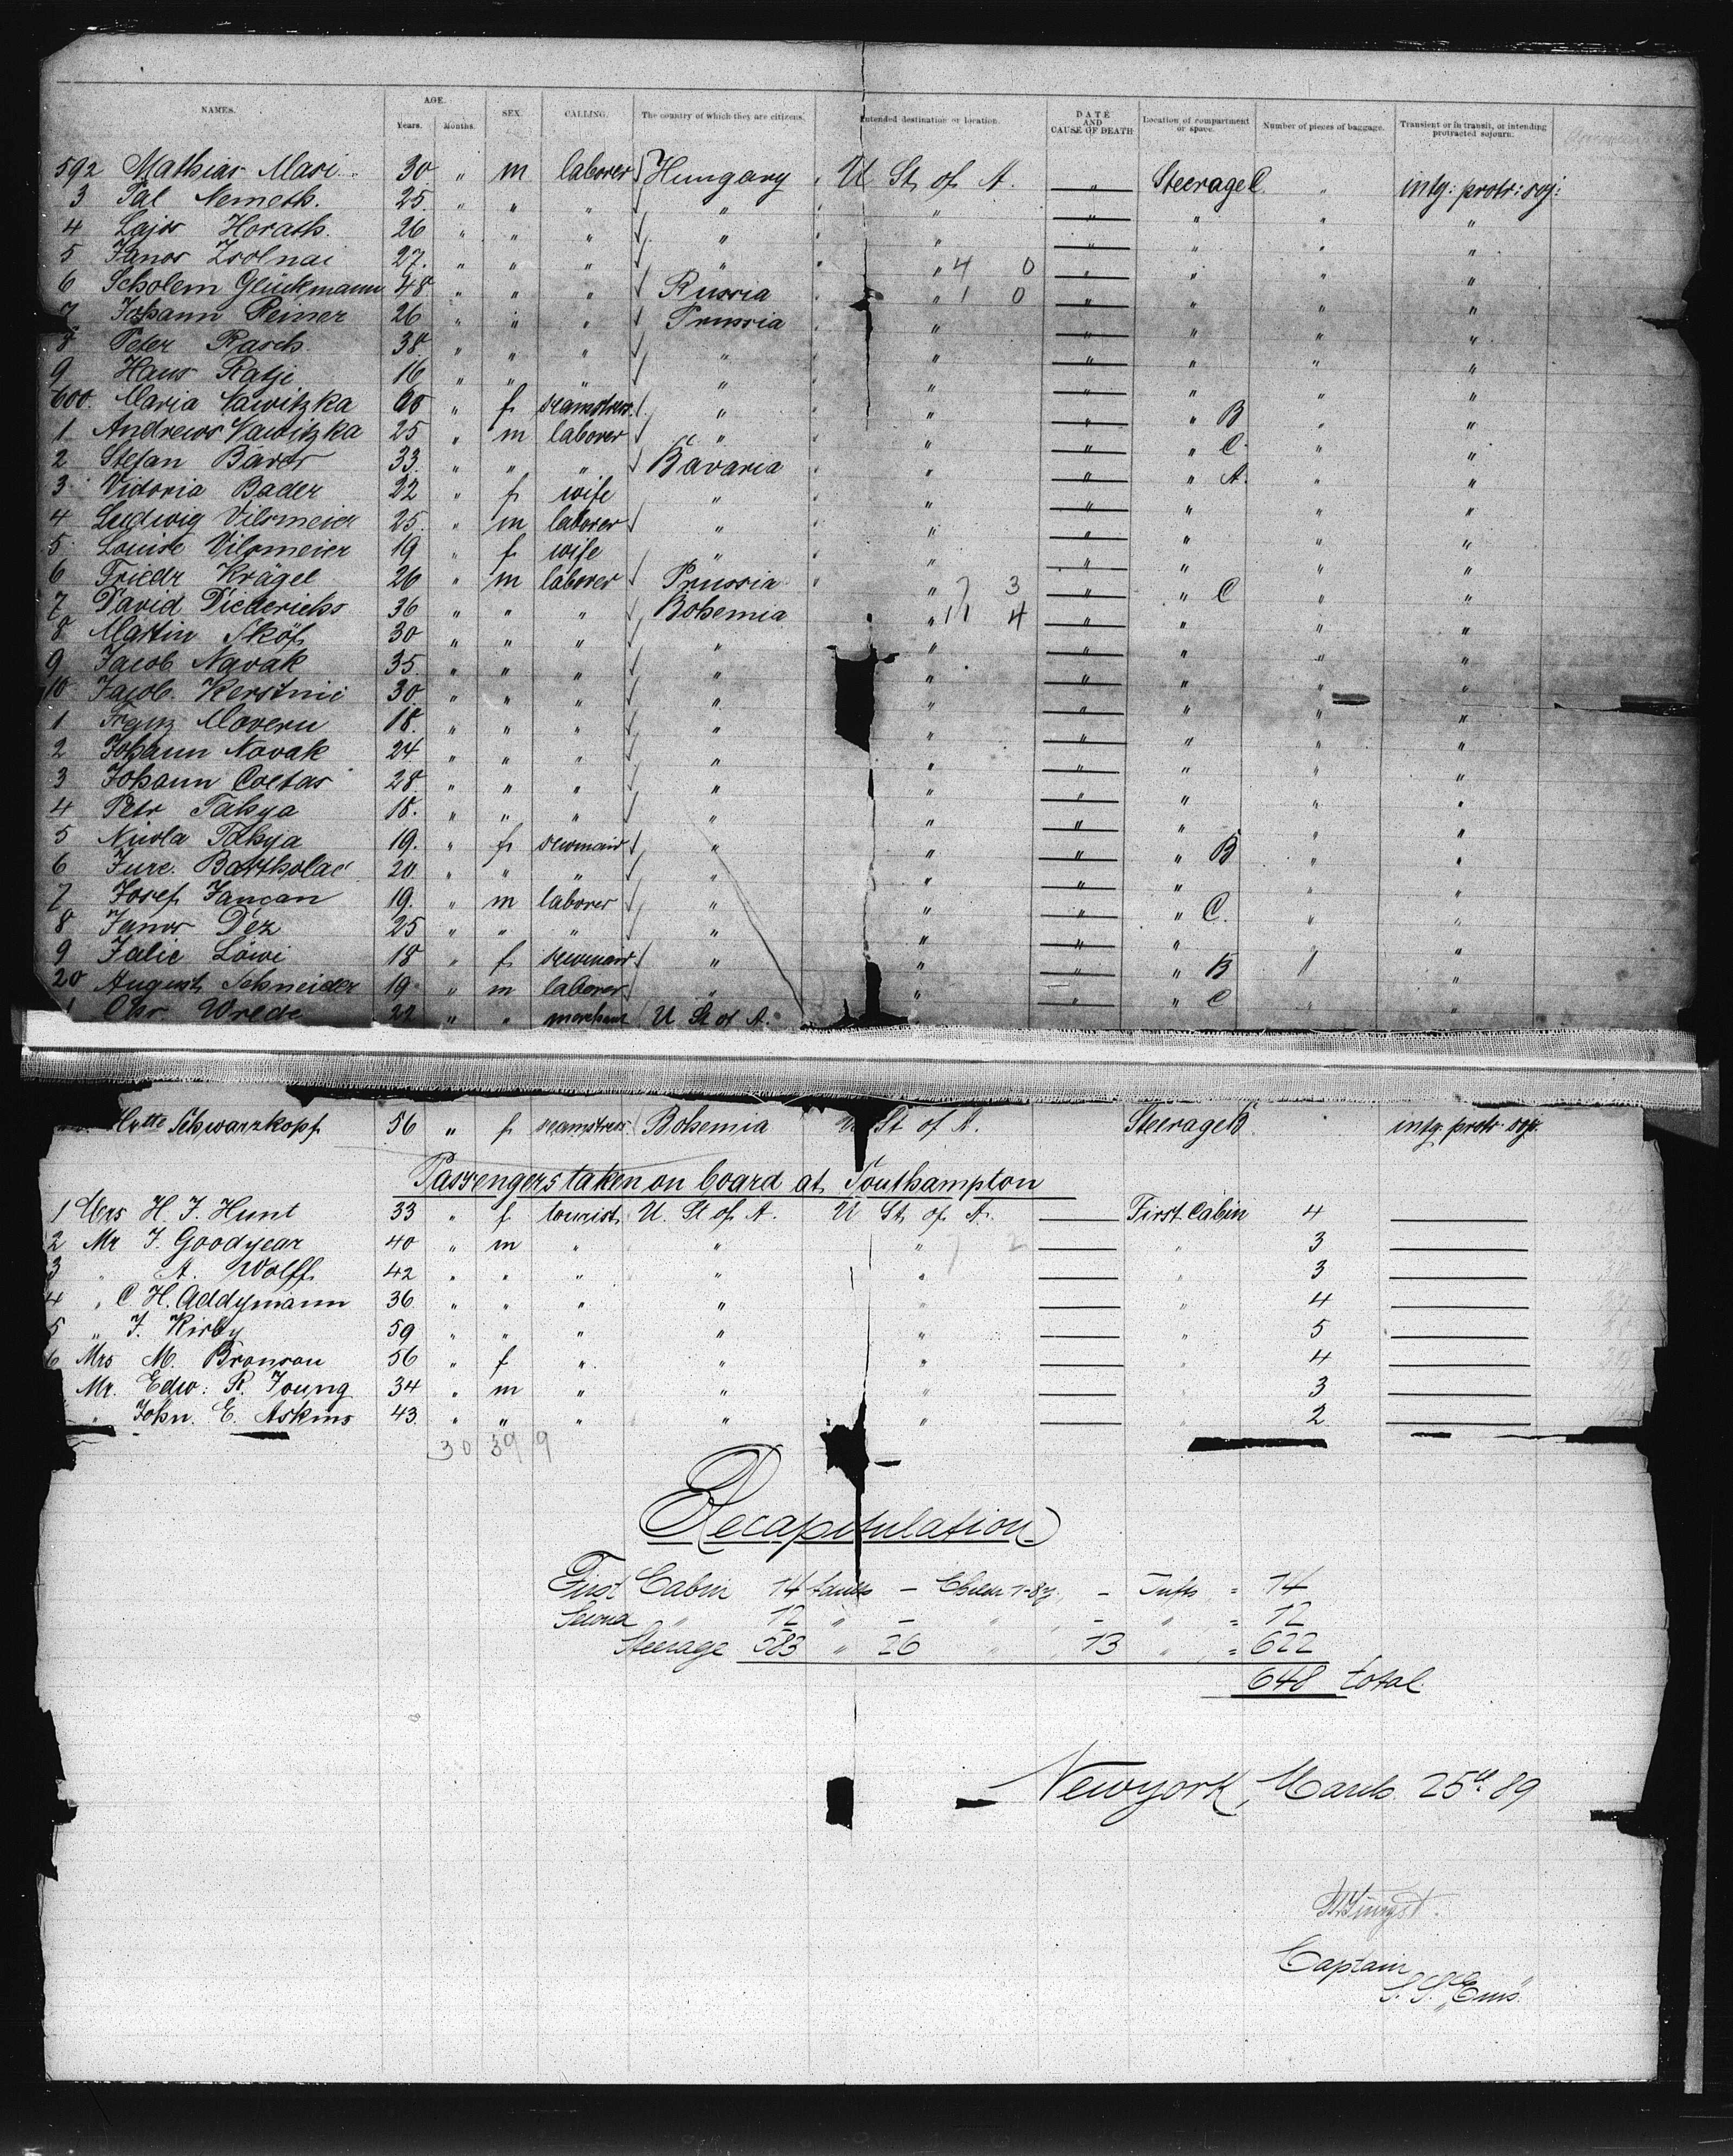 NAMES. AGE. Years. Months. SEX. CALLING. The country of which they are citizens. Intended destination or location. DATE AND CAUSE OF DEATH Location of compartment or space. Number of pieces of baggage. Transient or in transit, or intending protracted sojourn.
592 Mathias Masi 30 " m laborer Hungary U St of A. " Steerage C " intg: protr: soj:
3 Pal Nemeth. 25. " " " " " " " " "
4 Lajos Horath. 26 " " " " " " " " "
5 Janos Zsolnai 27. " " " " " 4 0 " " " "
6 Scholem Glückmann 48 " " " Russia " 1 0 " " " "
7 Johann Reiner 26 " " " Prussia " " " " "
8 Peter Rasch 38. " " " " " " " " "
9 Hans Ratje 16 " " " " " " " " "
600. Maria Vawitzka 60 " f seamstress " " " " B " "
1 Andrews Vawitzka 25 " m laborer " " " " C. " "
2 Stefan Bader 33. " " " Bavaria " " " A. " "
3 Victoria Bader 22 " f wife " " " " " "
4 Ludwig Vilsmeier 25. " m laborer " " " " " "
5 Louise Vilsmeier 19 " f wife " " " " " "
6 Friedr Krägel 26 " m laborer Prussia " 7 3 " " C " "
7 David Diederichs 36 " " " Bohemia " 11 4 " " " "
8 Martin Sköf 30 " " " " " " " " "
9 Jacob Navak 35. " " " " " " " " "
10 Jacob Kerstnic 30 " " " " " " " " "
1 Franz Moveru 18. " " " " " " " " "
2 Johann Novak 24 " " " " " " " " "
3 Johann Coetas 28. " " " " " " " " "
4 Petr Takya 18. " " " " " " " " "
5 Nicola Takya 19. " f " " " " B " "
6 Jure. Bartholac 20. " " " " " " " " "
7 Josef Jancan 19. " m laborer " " " " C. " "
8 Janos Dez 25 " " " " " " " " "
9 Julie Löwi 18 " f " " " " B " "
20 August Schneider 19 " m laborer " " " " C " "
1 Chr Wrede 22 " " merchant U St of A.
Schwarzkopf 56 " f seamstress Bohemia U St of A. Steerage B. intg protr soj.
Passengers taken on board at Southampton
1 Mrs H. J. Hunt 33 " f tourist U. St of A. U St of A. First Cabin 4
2 Mr J. Goodyear 40 " m " " " " 3
3 " A. Wolff 42 " " " " " " 3
4 " C. H. Addymann 36. " " " " " " 4
5 " J. Kirby 59 " " " " " " 5
6 Mrs M. Bronson 56 " f " " " " 4
Mr. Edw: R. Young 34 " m " " " " 3
" John. E. Askins 43. " " " " " " 2
30 39 9
Recapitulation
First Cabin 14 - - Infts = 14
Second " 12 " - " - " = 12
Steerage 583 " 26 " 13 " = 622
648 total.
Newyork, March 25th 89
Captain
S. S. "Ems"